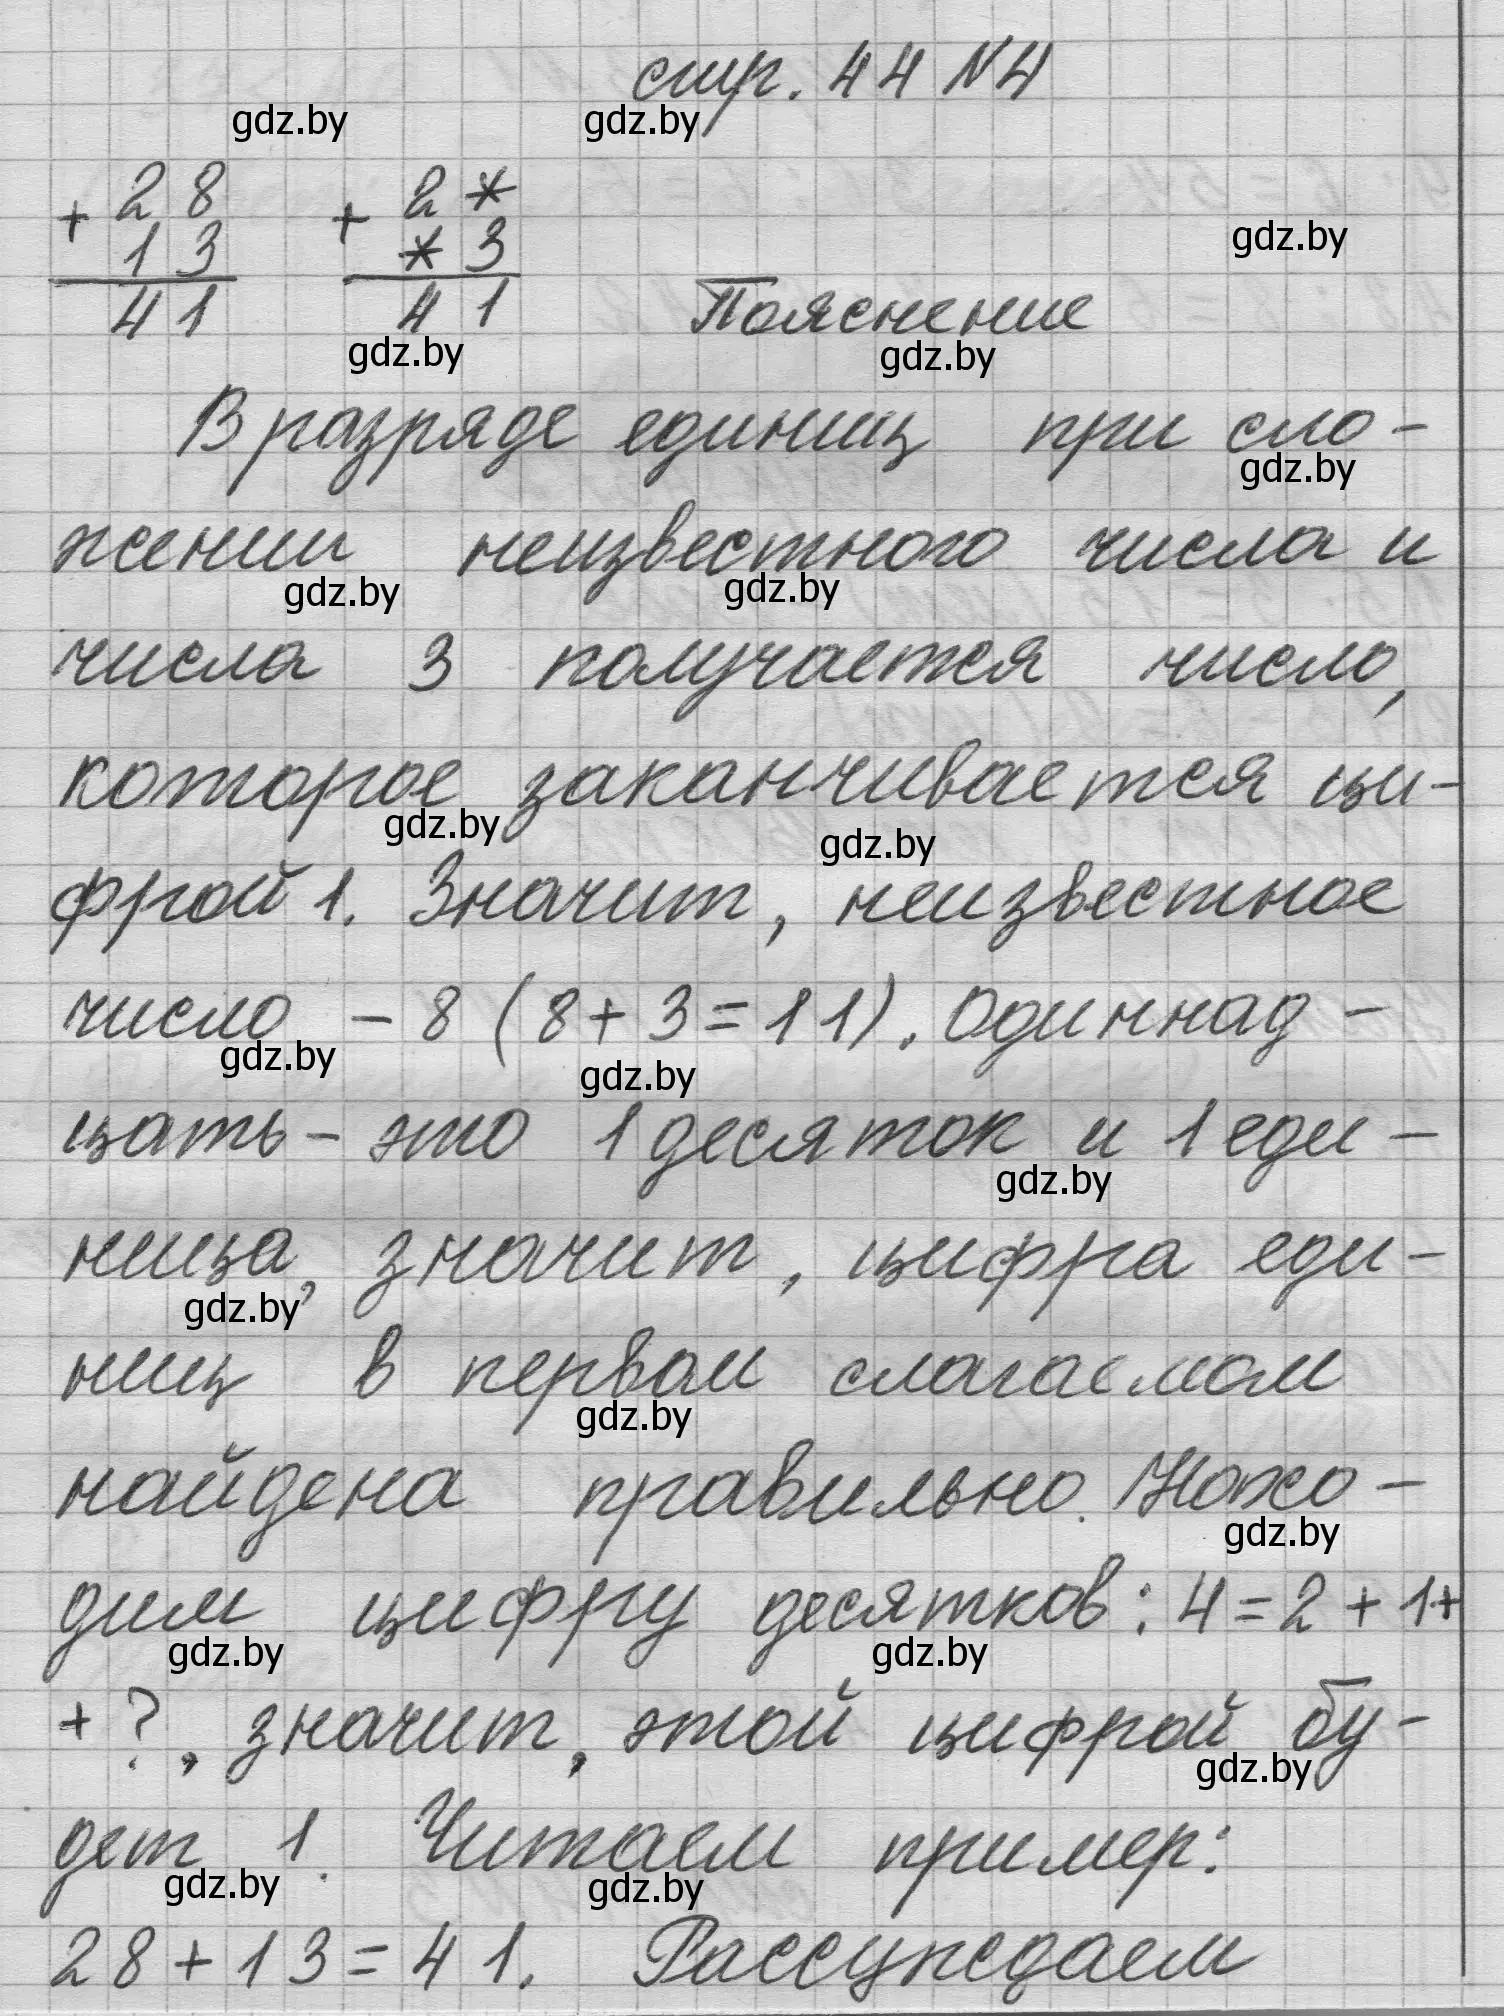 стр. 44 №4
gdz.by gdz.by
+ 28 + 2*
13 *3
gdz.by
41 41 Пояснение
gdz.by gdz.by
В разряде единиц при сло-
gdz.by
жении неизвестного числа и
gdz.by gdz.by
числа 3 получается число,
которое заканчивается ци-
gdz.by gdz.by
фрой 1. Значит, неизвестное
число - 8 (8+3=11). Одиннад-
gdz.by gdz.by
цать - это 1 десяток и 1 еди-
gdz.by
ница, значит, цифра еди-
gdz.by
ниц в первом слагаемом
gdz.by
найдена правильно. Нахо-
gdz.by
дим цифру десятков: 4=2+1+
gdz.by gdz.by
+?, значит, этой цифрой бу-
gdz.by
дет 1. Читаем пример:
gdz.by gdz.by
28+13=41. Рассуждаем